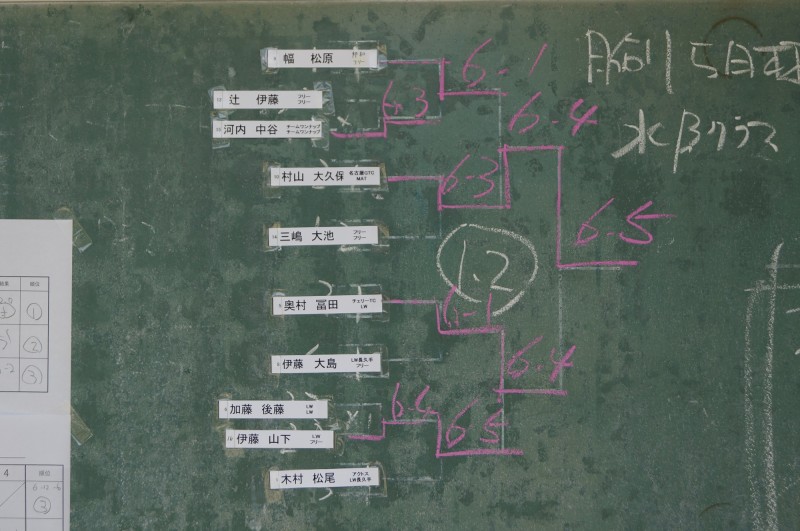 幅 松原 フリー
6-1
辻 伊藤 フリー フリー
6-3
河内 中谷 チームワンナップ チームワンナップ
6-4
水Bクラス
村山 大久保 名古屋GTC MAT
6-3
三嶋 大池 フリー フリー
6-5
1.2
奥村 冨田 チェリーTC LW
6-1
伊藤 大島 LW長久手 フリー
6-4
加藤 後藤 LW LW
6-4
伊藤 山下 LW フリー
6-5
木村 松尾 アクトス LW長久手
①
②
③
4 順位
③